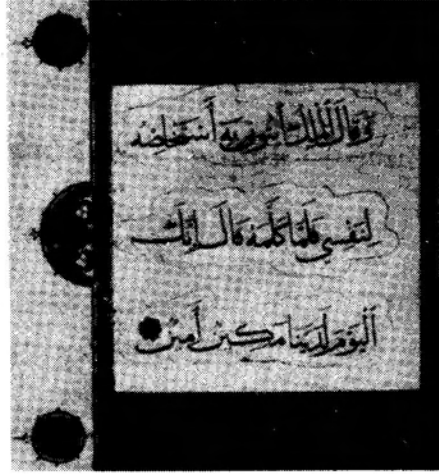 وَقَالَ ٱلْمَلِكُ ٱئْتُونِي بِهِ أَسْتَخْلِصْهُ
لِنَفْسِي فَلَمَّا كَلَّمَهُ قَالَ إِنَّكَ
ٱلْيَوْمَ لَدَيْنَا مَكِينٌ أَمِينٌ